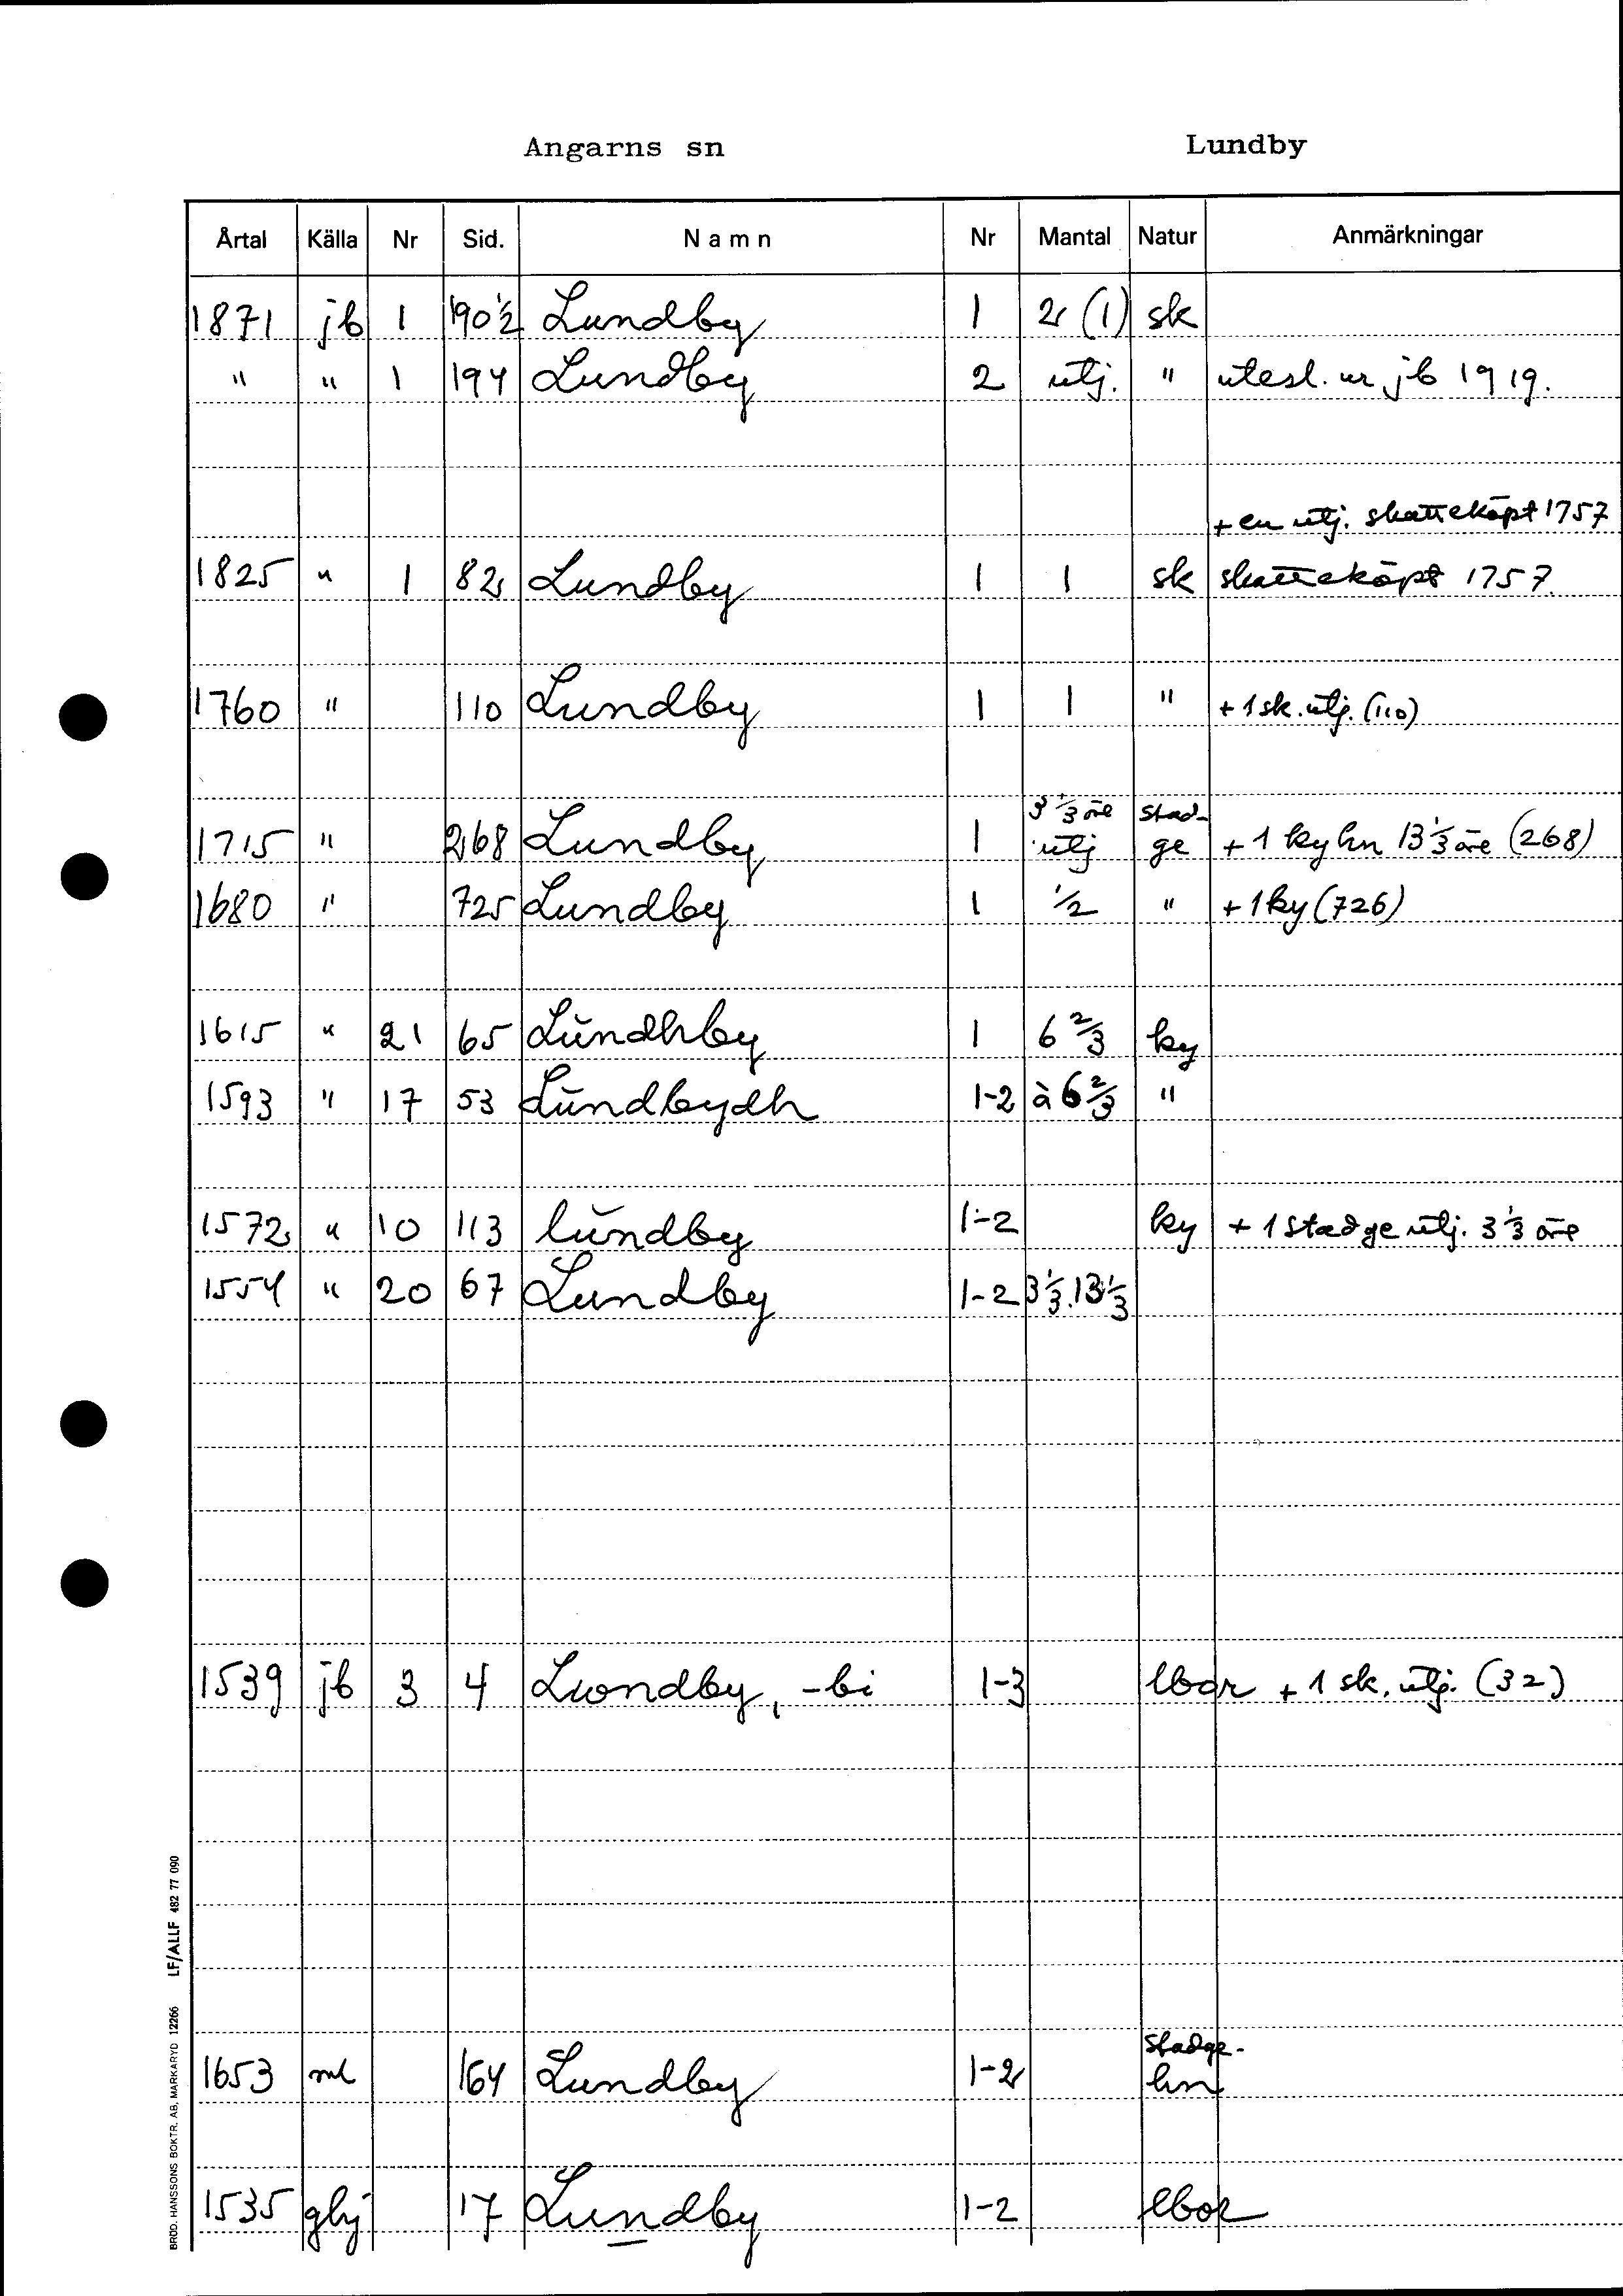 Angarns sn Lundby
Årtal Källa Nr Sid. Namn Nr Mantal Natur Anmärkningar
1871 jb 1 190½ Lundby 1 2 (1) sk
" " 1 194 Lundby 2 utj. " utesl. ur jb 1919.
+ en utj. skatteköpt 1757
1825 " 1 82 Lundby 1 1 sk skatteköpt 1757.
1760 " 110 Lundby 1 1 " + 1 sk. utj. (110)
3 1/3 öre Stad-
1715 " 268 Lundby 1 utj ge + 1 ky hn 13 1/3 öre (268)
1680 " 725 Lundby 1 ½ " + 1 ky (726)
1615 " 21 65 Lŭndhby 1 6 2/3 ky
1593 " 17 53 Lŭndbydh 1-2 à 6 2/3 "
1572 " 10 113 lŭndby 1-2 ky + 1 stadge utj. 3 1/3 öre
1554 " 20 67 Lundby 1-2 3 1/3. 13 1/3
1539 jb 3 4 Lwndby, -bi 1-3 lbor + 1 sk. utj. (32)
Stadge-
1653 ml 164 Lundby 1-2 hn
1535 ghj 17 Lundby 1-2 lbor
BRÖD. HANSSONS BOKTR. AB, MARKARYD 12266 LF/ALLF 482 77 090